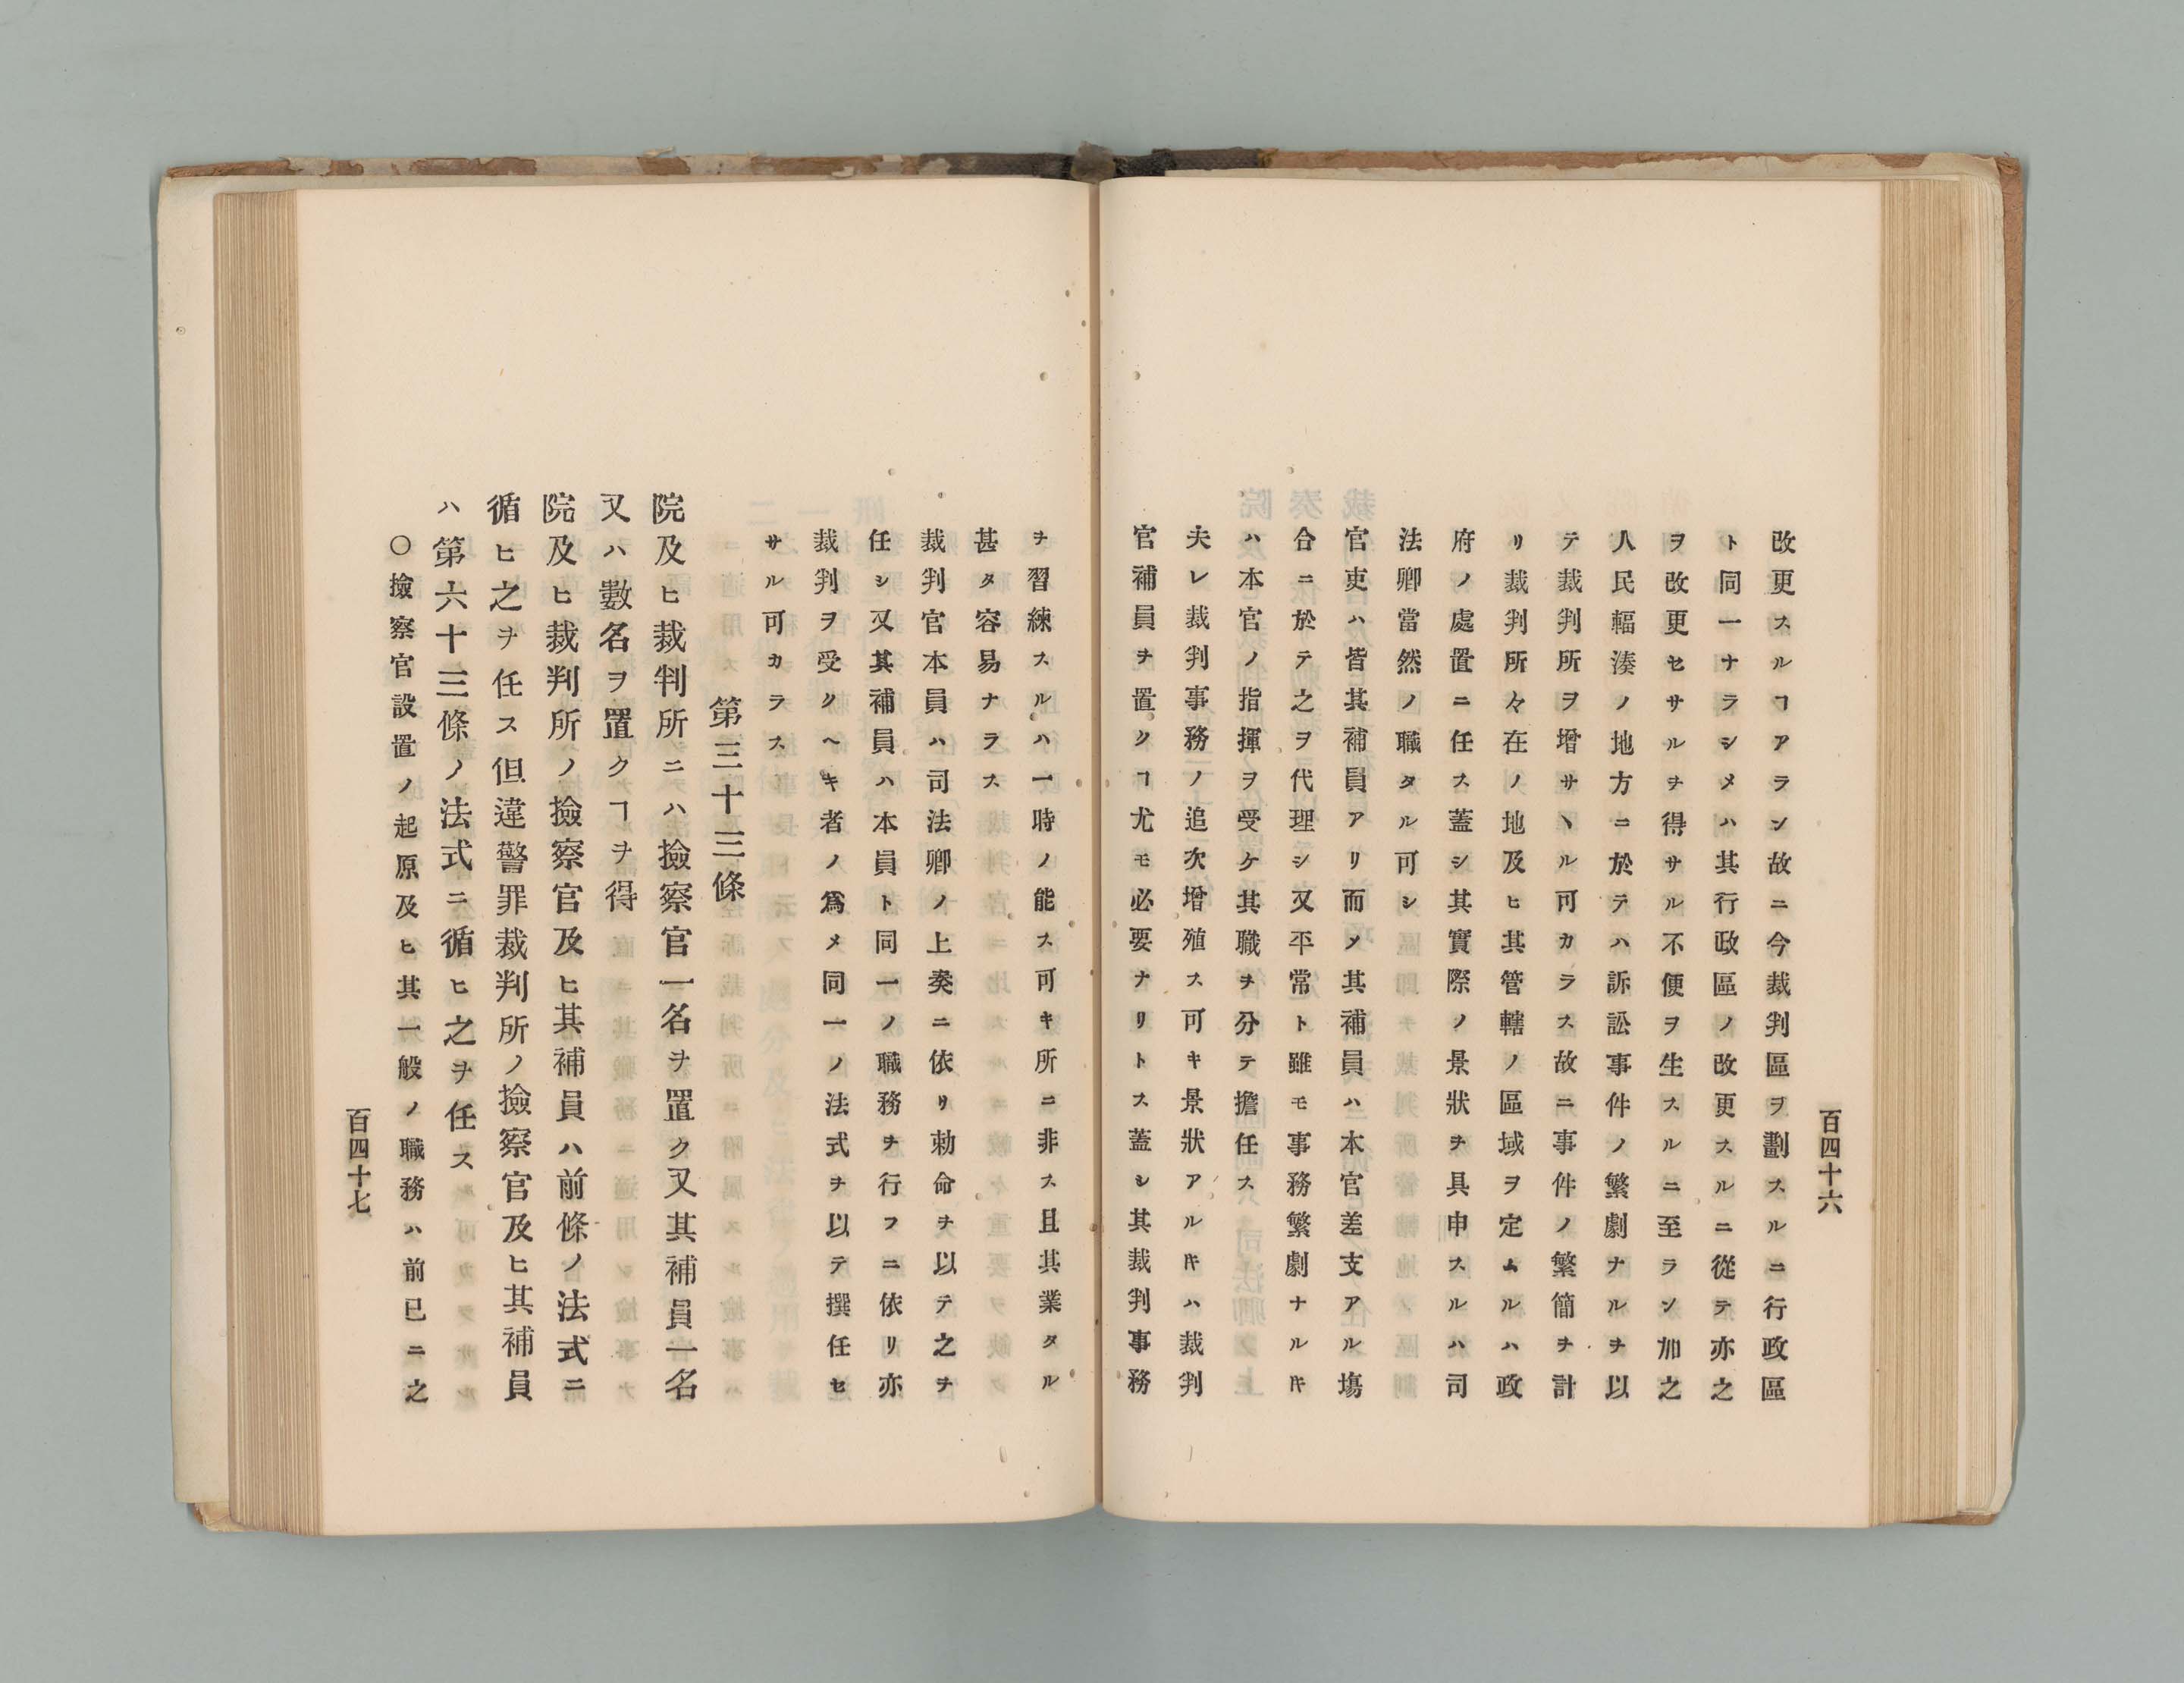 百四十六
改更スルヿアラン故ニ今裁判區ヲ劃スルニ行政區
ト同一ナラシメハ其行政區ノ改更スルニ從テ亦之
ヲ改更セサルヲ得サル不便ヲ生スルニ至ラン加之
人民輻湊ノ地方ニ於テハ訴訟事件ノ繁劇ナルヲ以
テ裁判所ヲ增サヽル可カラス故ニ事件ノ繁簡ヲ計
リ裁判所々在ノ地及ヒ其管轄ノ區域ヲ定ムルハ政
府ノ處置ニ任ス蓋シ其實際ノ景狀ヲ具申スルハ司
法卿當然ノ職タル可シ
官吏ハ皆其補員アリ而メ其補員ハ本官差支アル塲
合ニ於テ之ヲ代理シ又平常ト雖モ事務繁劇ナル𪜈
ハ本官ノ指揮ヲ受ケ其職ヲ分テ擔任ス
夫レ裁判事務ノ追次增殖ス可キ景狀アル𪜈ハ裁判
官補員ヲ置クヿ尤モ必要ナリトス蓋シ其裁判事務
ヲ習練スルハ一時ノ能ス可キ所ニ非ス且其業タル
甚タ容易ナラス
裁判官本員ハ司法卿ノ上奏ニ依リ勅命ヲ以テ之ヲ
任シ又其補員ハ本員ト同一ノ職務ヲ行フニ依リ亦
裁判ヲ受クヘキ者ノ爲メ同一ノ法式ヲ以テ撰任セ
サル可カラス
第三十三條
院及ヒ裁判所ニハ撿察官一名ヲ置ク又其補員一名
又ハ數名ヲ置クヿヲ得
院及ヒ裁判所ノ撿察官及ヒ其補員ハ前條ノ法式ニ
循ヒ之ヲ任ス但違警罪裁判所ノ撿察官及ヒ其補員
ハ第六十三條ノ法式ニ循ヒ之ヲ任ス
〇撿察官設置ノ起原及ヒ其一般ノ職務ハ前已ニ之
百四十七